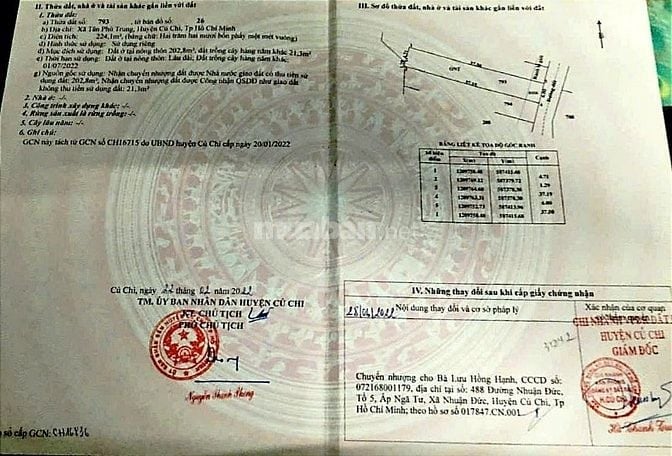 II. Thửa đất, nhà ở và tài sản khác gắn liền với đất
1. Thửa đất:
a) Thửa đất số: 793 , tờ bản đồ số: 26
b) Địa chỉ: Xã Tân Phú Trung, Huyện Củ Chi, Tp Hồ Chí Minh
c) Diện tích: 224,1m², (bằng chữ: Hai trăm hai mươi bốn phẩy một mét vuông)
d) Hình thức sử dụng: Sử dụng riêng
đ) Mục đích sử dụng: Đất ở tại nông thôn 202,8m², đất trồng cây hàng năm khác 21,3m²
e) Thời hạn sử dụng: Đất ở tại nông thôn: Lâu dài; Đất trồng cây hàng năm khác:
01/07/2022
g) Nguồn gốc sử dụng: Nhận chuyển nhượng đất được Nhà nước giao có thu tiền sử
dụng đất: 202,8m², Nhận chuyển nhượng đất được Công nhận QSDĐ như giao đất
không thu tiền sử dụng đất: 21,3m²
2. Nhà ở: -/-
3. Công trình xây dựng khác: -/-
4. Rừng sản xuất là rừng trồng: -/-
5. Cây lâu năm: -/-
6. Ghi chú:
GCN này tách từ GCN số CH16715 do UBND huyện Củ Chi cấp ngày 20/01/2022
Củ Chi, ngày 22 tháng 02 năm 2022
TM. ỦY BAN NHÂN DÂN HUYỆN CỦ CHI
KT. CHỦ TỊCH
PHÓ CHỦ TỊCH
Nguyễn Thanh Phong
số cấp GCN: CH16836
III. Sơ đồ thửa đất, nhà ở và tài sản khác gắn liền với đất
ONT
793
BẢNG LIỆT KÊ TỌA ĐỘ GÓC RANH
Số hiệu điểm Tọa độ Cạnh
X(m) Y(m)
4.71
1.29
37.19
6.00
37.80
IV. Những thay đổi sau khi cấp giấy chứng nhận
Nội dung thay đổi và cơ sở pháp lý
Xác nhận của cơ quan
có thẩm quyền
Chuyển nhượng cho Bà Lưu Hồng Hạnh, CCCD số:
072168001179, địa chỉ tại số: 488 Đường Nhuận Đức,
Tổ 5, Ấp Ngã Tư, Xã Nhuận Đức, Huyện Củ Chi, Tp
Hồ Chí Minh; theo hồ sơ 017847.CN.001
HUYỆN CỦ CHI
GIÁM ĐỐC